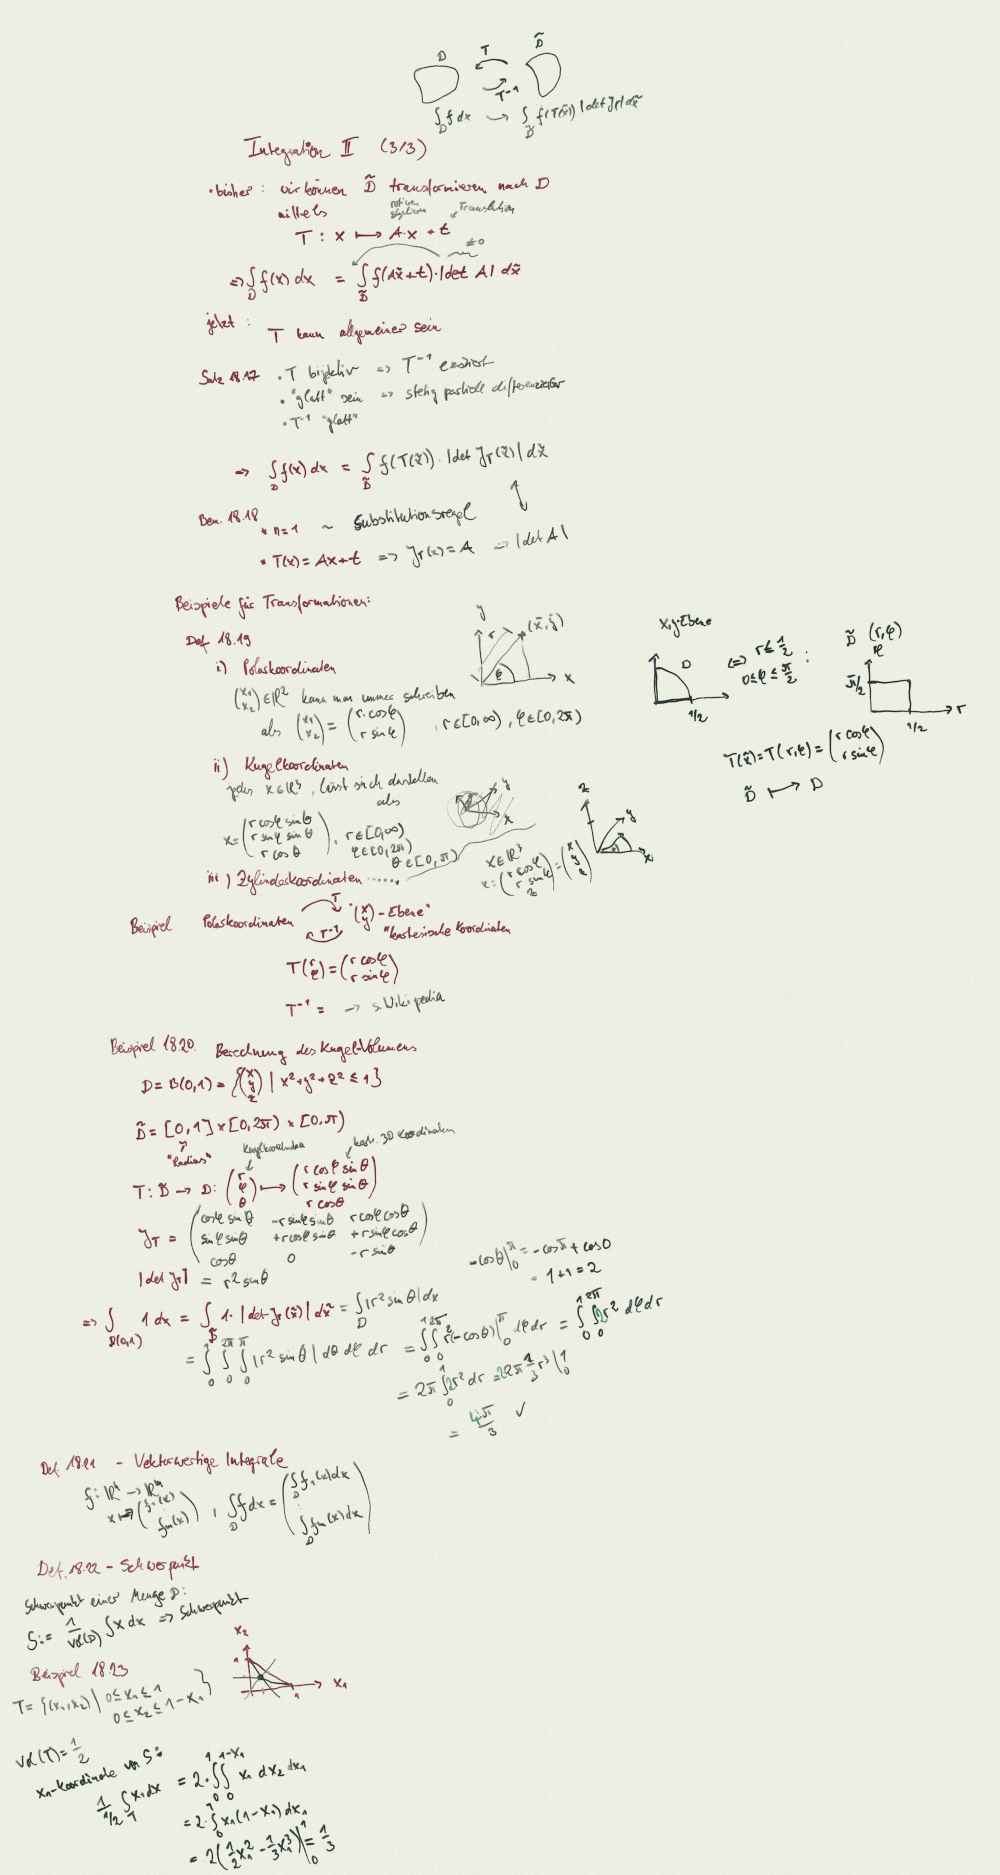 D T D̃
T⁻¹
∫_D f dx → ∫_D̃ f(T(x̃)) |det J_T| dx̃
Integration II (3/3)
• bisher: wir können D̃ transformieren nach D
mittels
Translation
T: x ↦ A·x + t
≠0
=> ∫_D f(x) dx = ∫_D̃ f(Ax̃+t)·|det A| dx̃
jetzt: T kann allgemeiner sein
Satz 18.17 • T bijektiv => T⁻¹ existiert
• "glatt" sein => stetig partiell differenzierbar
• T⁻¹ "glatt"
=> ∫_D f(x) dx = ∫_D̃ f(T(x̃))·|det J_T(x̃)| dx̃
Bem. 18.18 • n=1 ~ Substitutionsregel
• T(x) = Ax+t => J_T(x) = A => |det A|
Beispiele für Transformationen:
Def 18.19
i) Polarkoordinaten
(x₁ x₂) ∈ ℝ² kann man immer schreiben
als (x₁ x₂) = (r·cosφ r sinφ), r∈[0,∞), φ∈[0,2π)
y r (x̃,ỹ) φ x
x,y-Ebene
D
1/2
<=> r ≤ 1/2
0≤φ≤π/2 :
D̃ (r,φ)
φ
π/2
1/2 r
T(x̃) = T(r,φ) = (r cosφ r sinφ)
D̃ ↦ D
ii) Kugelkoordinaten
jedes x∈ℝ³, lässt sich darstellen
als
x = (r cosφ sinθ r sinφ sinθ r cosθ), r∈[0,∞)
φ∈[0,2π)
θ∈[0,π)
y
x
z
y
x
iii) Zylinderkoordinaten ......
x∈ℝ³
x = (r cosφ r sinφ z) = (x y z)
Beispiel Polarkoordinaten T T⁻¹ "(x y)-Ebene"
"kartesische Koordinaten
T(r φ) = (r cosφ r sinφ)
T⁻¹ = → s. Wikipedia
Beispiel 18.20. Berechnung des Kugel-Volumens
D = B(0,1) = {(x y z) | x²+y²+z² ≤ 1}
D̃ = [0,1] × [0,2π) × [0,π)
"Radius"
Kugelkoordinaten
kart. 3D Koordinaten
T: D̃ → D: (r φ θ) ↦ (r cosφ sinθ r sinφ sinθ r cosθ)
J_T = (cosφ sinθ -r sinφ sinθ r cosφ cosθ
sinφ sinθ +r cosφ sinθ +r sinφ cosθ
cosθ 0 -r sinθ)
|det J_T| = r² sinθ
-cosθ|₀^π = -cosπ + cos0
= 1+1 = 2
=> ∫_B(0,1) 1 dx = ∫_D̃ 1·|det J_T(x̃)| dx̃ = ∫_D |r² sinθ| dx
= ∫₀¹ ∫₀^2π ∫₀^π |r² sinθ| dθ dφ dr = ∫₀¹ ∫₀^2π r²(-cosθ)|₀^π dφ dr = ∫₀¹ ∫₀^2π 2r² dφ dr
= 2π ∫₀¹ 2r² dr = 2·2π 1/3 r³ |₀¹
= 4π/3 ✓
Def. 18.21 - Vektorwertige Integrale
f: ℝⁿ → ℝᵐ
x ↦ (f₁(x) ⋮ fₘ(x)), ∫_D f dx = (∫_D f₁(x)dx ⋮ ∫_D fₘ(x)dx)
Def. 18.22 - Schwerpunkt
Schwerpunkt einer Menge D:
S := 1/vol(D) ∫ x dx => Schwerpunkt
Beispiel 18.23
T = {(x₁,x₂) | 0≤x₁≤1
0≤x₂≤1-x₁}
x₂
1
1
x₁
vol(T) = 1/2
x₁-Koordinate von S:
1/(1/2) ∫_T x₁ dx = 2·∫₀¹ ∫₀^(1-x₁) x₁ dx₂ dx₁
= 2·∫₀¹ x₁(1-x₁) dx₁
= 2(1/2 x₁² - 1/3 x₁³)|₀¹ = 1/3